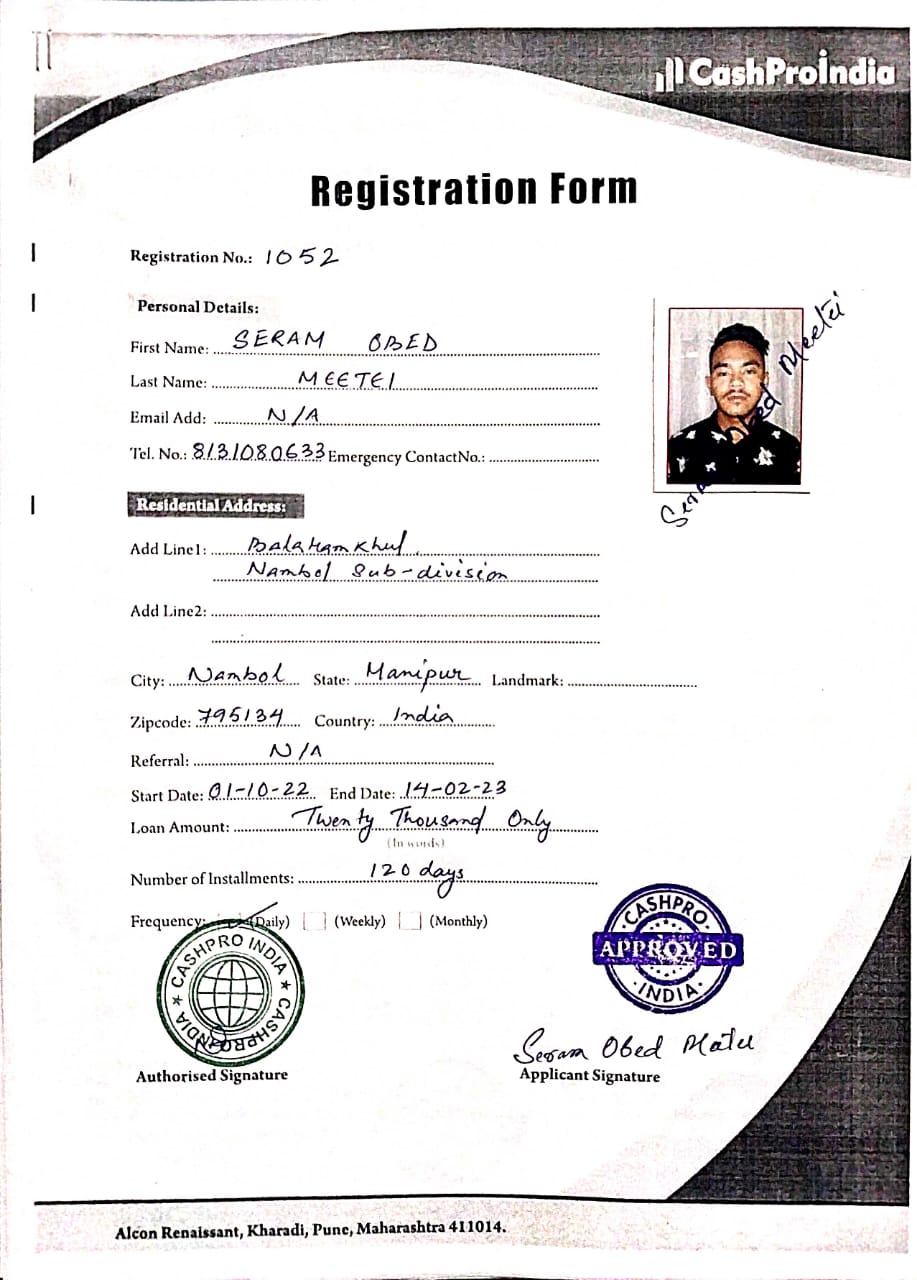 CashProIndia
Registration Form
Registration No.: 1052
Personal Details:
First Name: SERAM OBED
Last Name: MEETEI
Email Add: N/A
Tel. No.: 8131080633 Emergency ContactNo.:
Seram Obed Meetei
Residential Address:
Add Line1: Balaramkhul,
Nambol Sub-division
Add Line2:
City: Nambol State: Manipur Landmark:
Zipcode: 795134 Country: India
Referral: N/A
Start Date: 01-10-22 End Date: 14-02-23
Loan Amount: Twenty Thousand Only
(In words)
Number of Installments: 120 days
Frequency: (Daily) (Weekly) (Monthly)
CASHPRO INDIA CASHPRO INDIA
CASHPRO
APPROVED
INDIA
Seram Obed
Authorised Signature
Applicant Signature
Alcon Renaissant, Kharadi, Pune, Maharashtra 411014.